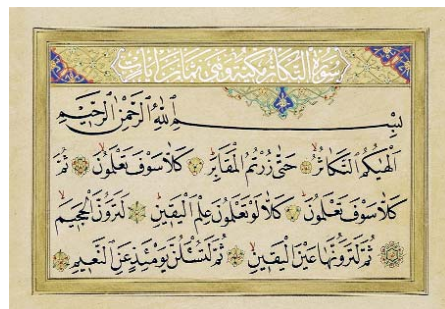 سورة التكاثر مكية وهي ثمان آيات
بسم الله الرحمن الرحيم
أَلْهٰيكُمُ التَّكَاثُرُ حَتّٰى زُرْتُمُ الْمَقَابِرَ كَلَّا سَوْفَ تَعْلَمُونَ ثُمَّ
كَلَّا سَوْفَ تَعْلَمُونَ كَلَّا لَوْ تَعْلَمُونَ عِلْمَ الْيَقِينِ لَتَرَوُنَّ الْجَحِيمَ
ثُمَّ لَتَرَوُنَّهَا عَيْنَ الْيَقِينِ ثُمَّ لَتُسْـَٔلُنَّ يَوْمَئِذٍ عَنِ النَّعِيمِ